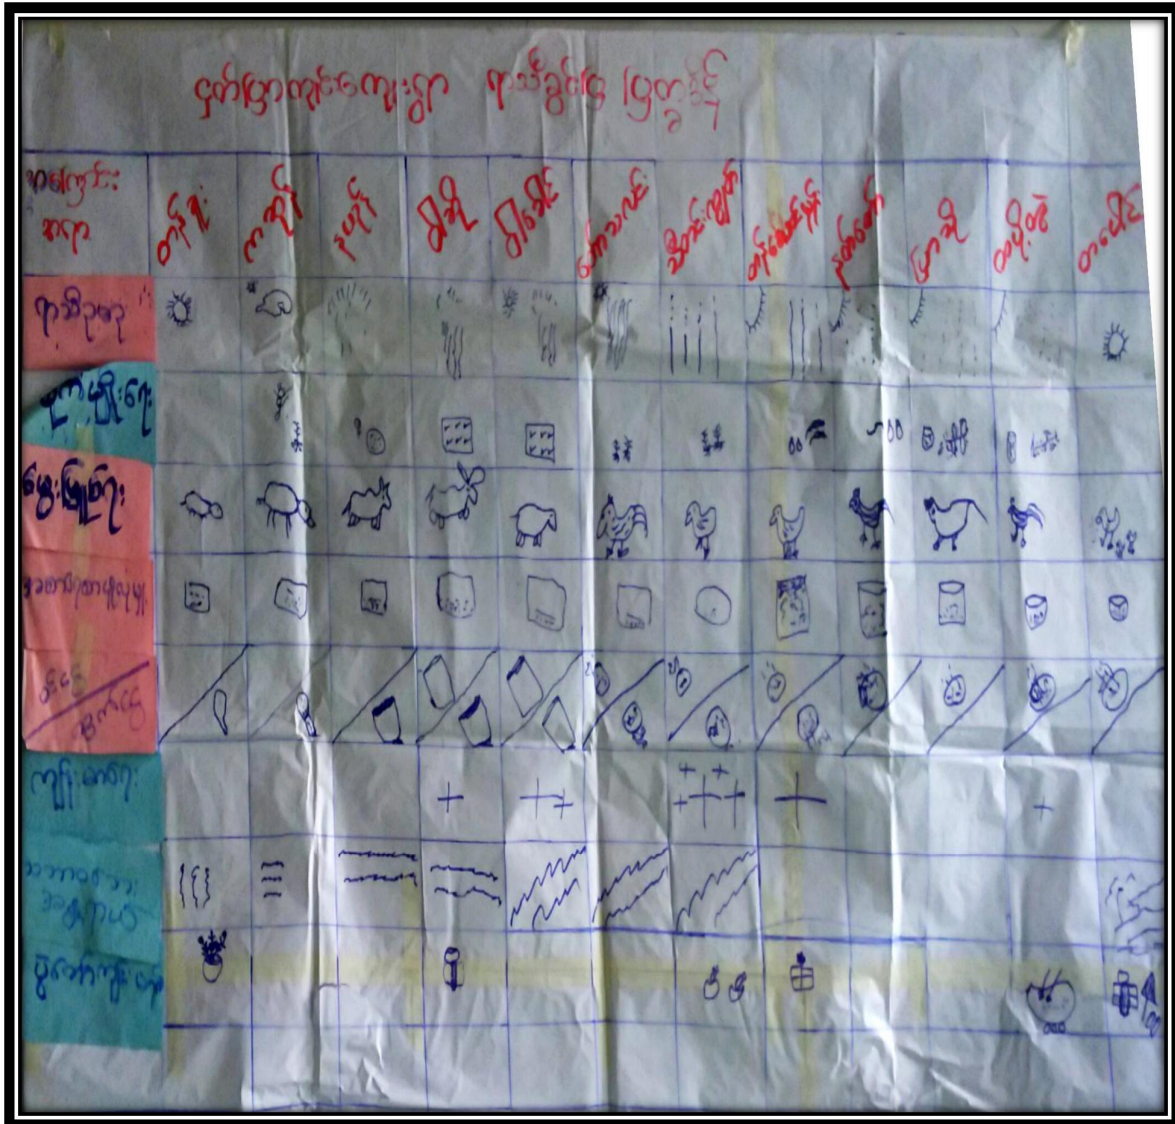 ငှက်ပြောကျင်းကျေးရွာ ရာသီခွင်ပြ ပြက္ခဒိန်
အကြောင်း
အရာ
တန်ခူး ကဆုန် နယုန် ဝါဆို ဝါခေါင် တော်သလင်း သီတင်းကျွတ် တန်ဆောင်မုန်း နတ်တော် ပြာသို တပို့တွဲ တပေါင်း
ရာသီဥတု
စိုက်ပျိုးရေး
မွေးမြူရေး
ဝင်ငွေ
ထွက်ငွေ
ကျန်းမာရေး
သဘာဝဘေး